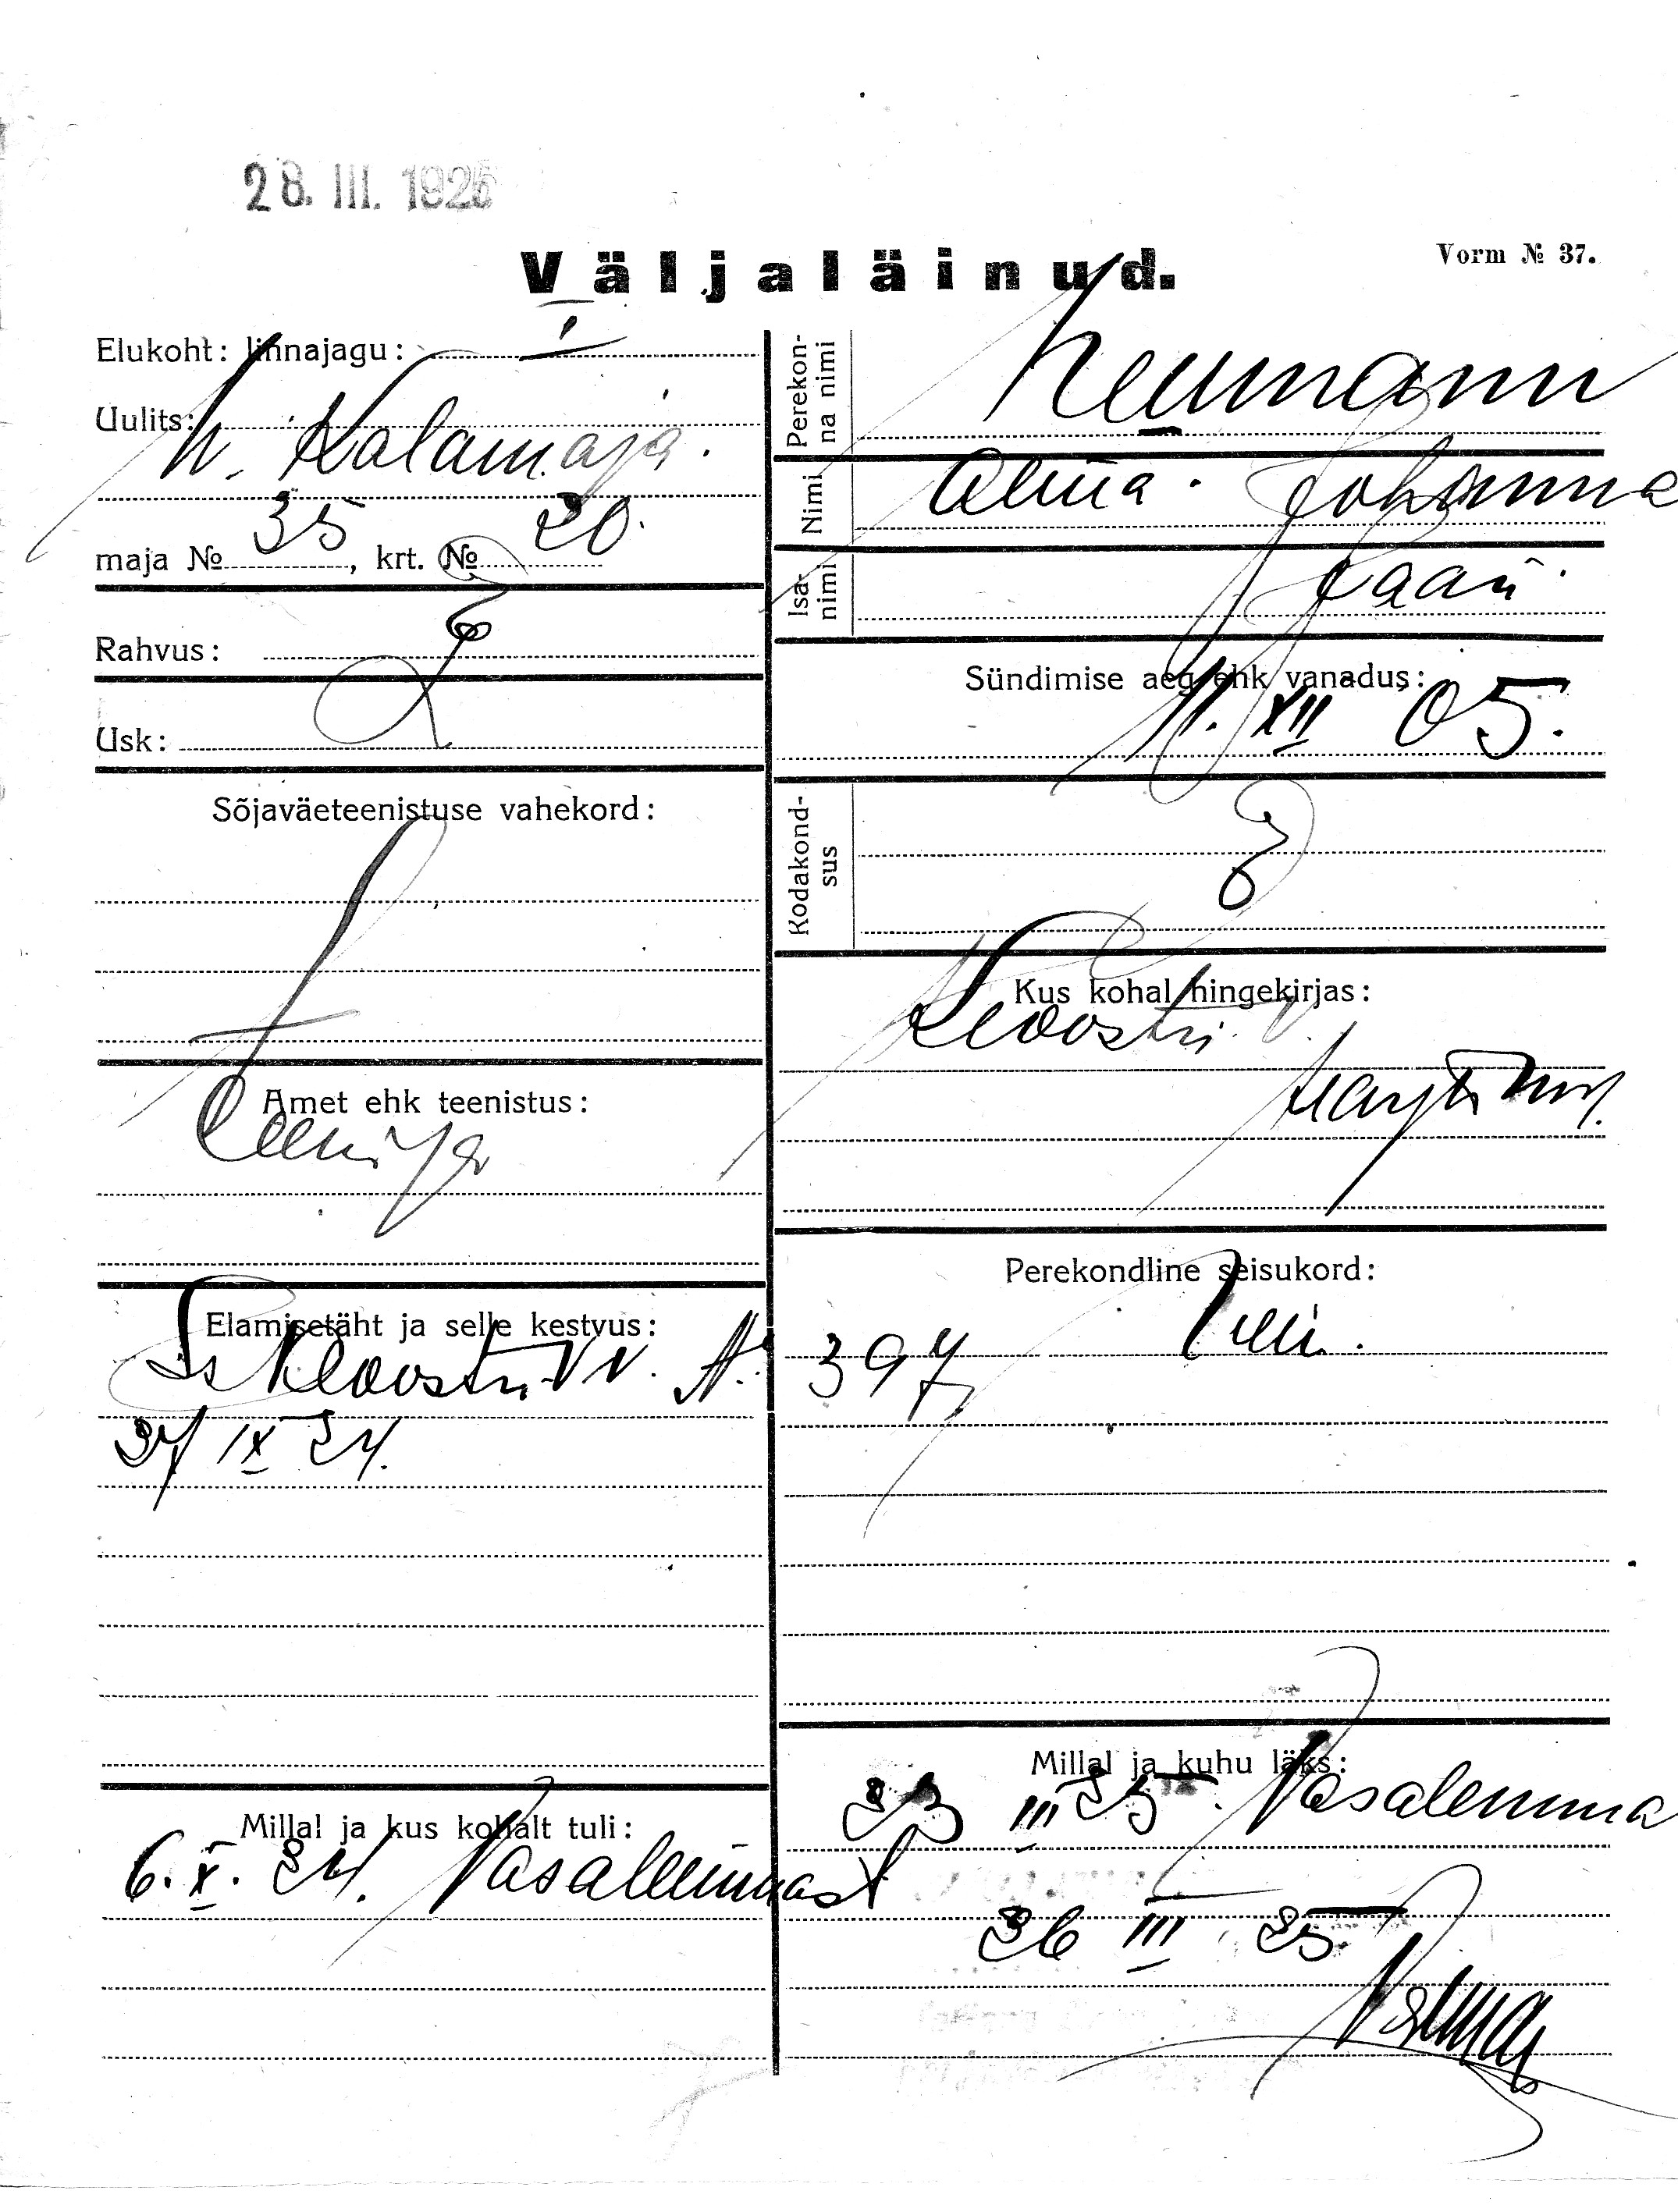 28. III. 1925
Väljaläinud.
Vorm № 37.
Elukoht: linnajagu: I
Uulits: W. Kalamaja.
maja № 35, krt. № 20.
Rahvus: E
Usk: L
Sõjaväeteenistuse vahekord:
Amet ehk teenistus:
Elamisetäht ja selle kestvus:
Kloostri V V. № 397
27 IX 24.
Millal ja kus kohalt tuli:
6. X. 24. Vasalemmast
Perekonna nimi
Neumann
Nimi
Alma Johanna
Isanimi
Jaan
Sündimise aeg ehk vanadus:
11. XII 05.
Kodakondsus
E
Kus kohal hingekirjas:
Kloostri V.
Harju mk.
Perekondline seisukord:
Millal ja kuhu läks:
23 III 25. Vasalemma
26 III 25.